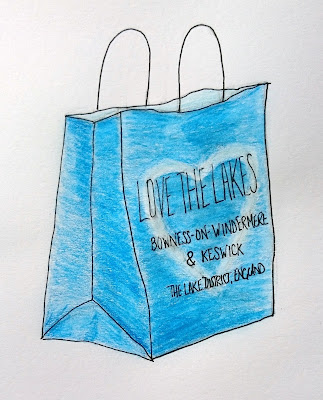 LOVE THE LAKES
BOWNESS-ON-WINDERMERE
& KESWICK
THE LAKE DISTRICT, ENGLAND